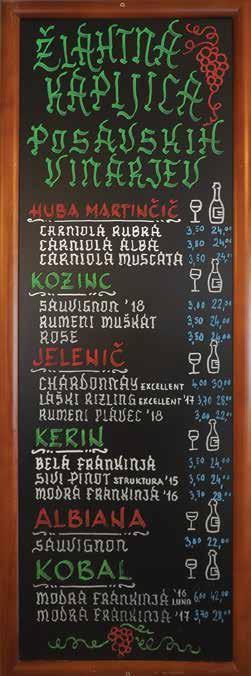 ŽLAHTNA
KAPLJICA
POSAVSKIH
VINARJEV
HUBA MARTINČIČ
CARNIOLA RUBRA 3,50 24,00
CARNIOLA ALBA 3,50 24,00
CARNIOLA MUSCATA 3,50 24,00
KOZINC
SAUVIGNON '18 3,00 22,00
RUMENI MUŠKAT 3,50 24,00
ROSE 3,50 24,00
JELENIČ
CHARDONNAY EXCELLENT 4,00 30,00
LAŠKI RIZLING EXCELLENT '17 3,70 28,00
RUMENI PLAVEC '18 3,00 22,00
KERIN
BELA FRANKINJA 3,50 24,00
SIVI PINOT STRUKTURA '15 3,50 24,00
MODRA FRANKINJA '16 3,70 28,00
ALBIANA
SAUVIGNON 3,00 22,00
KOBAL
MODRA FRANKINJA '16 LUNA 6,00 42,00
MODRA FRANKINJA '17 3,70 28,00